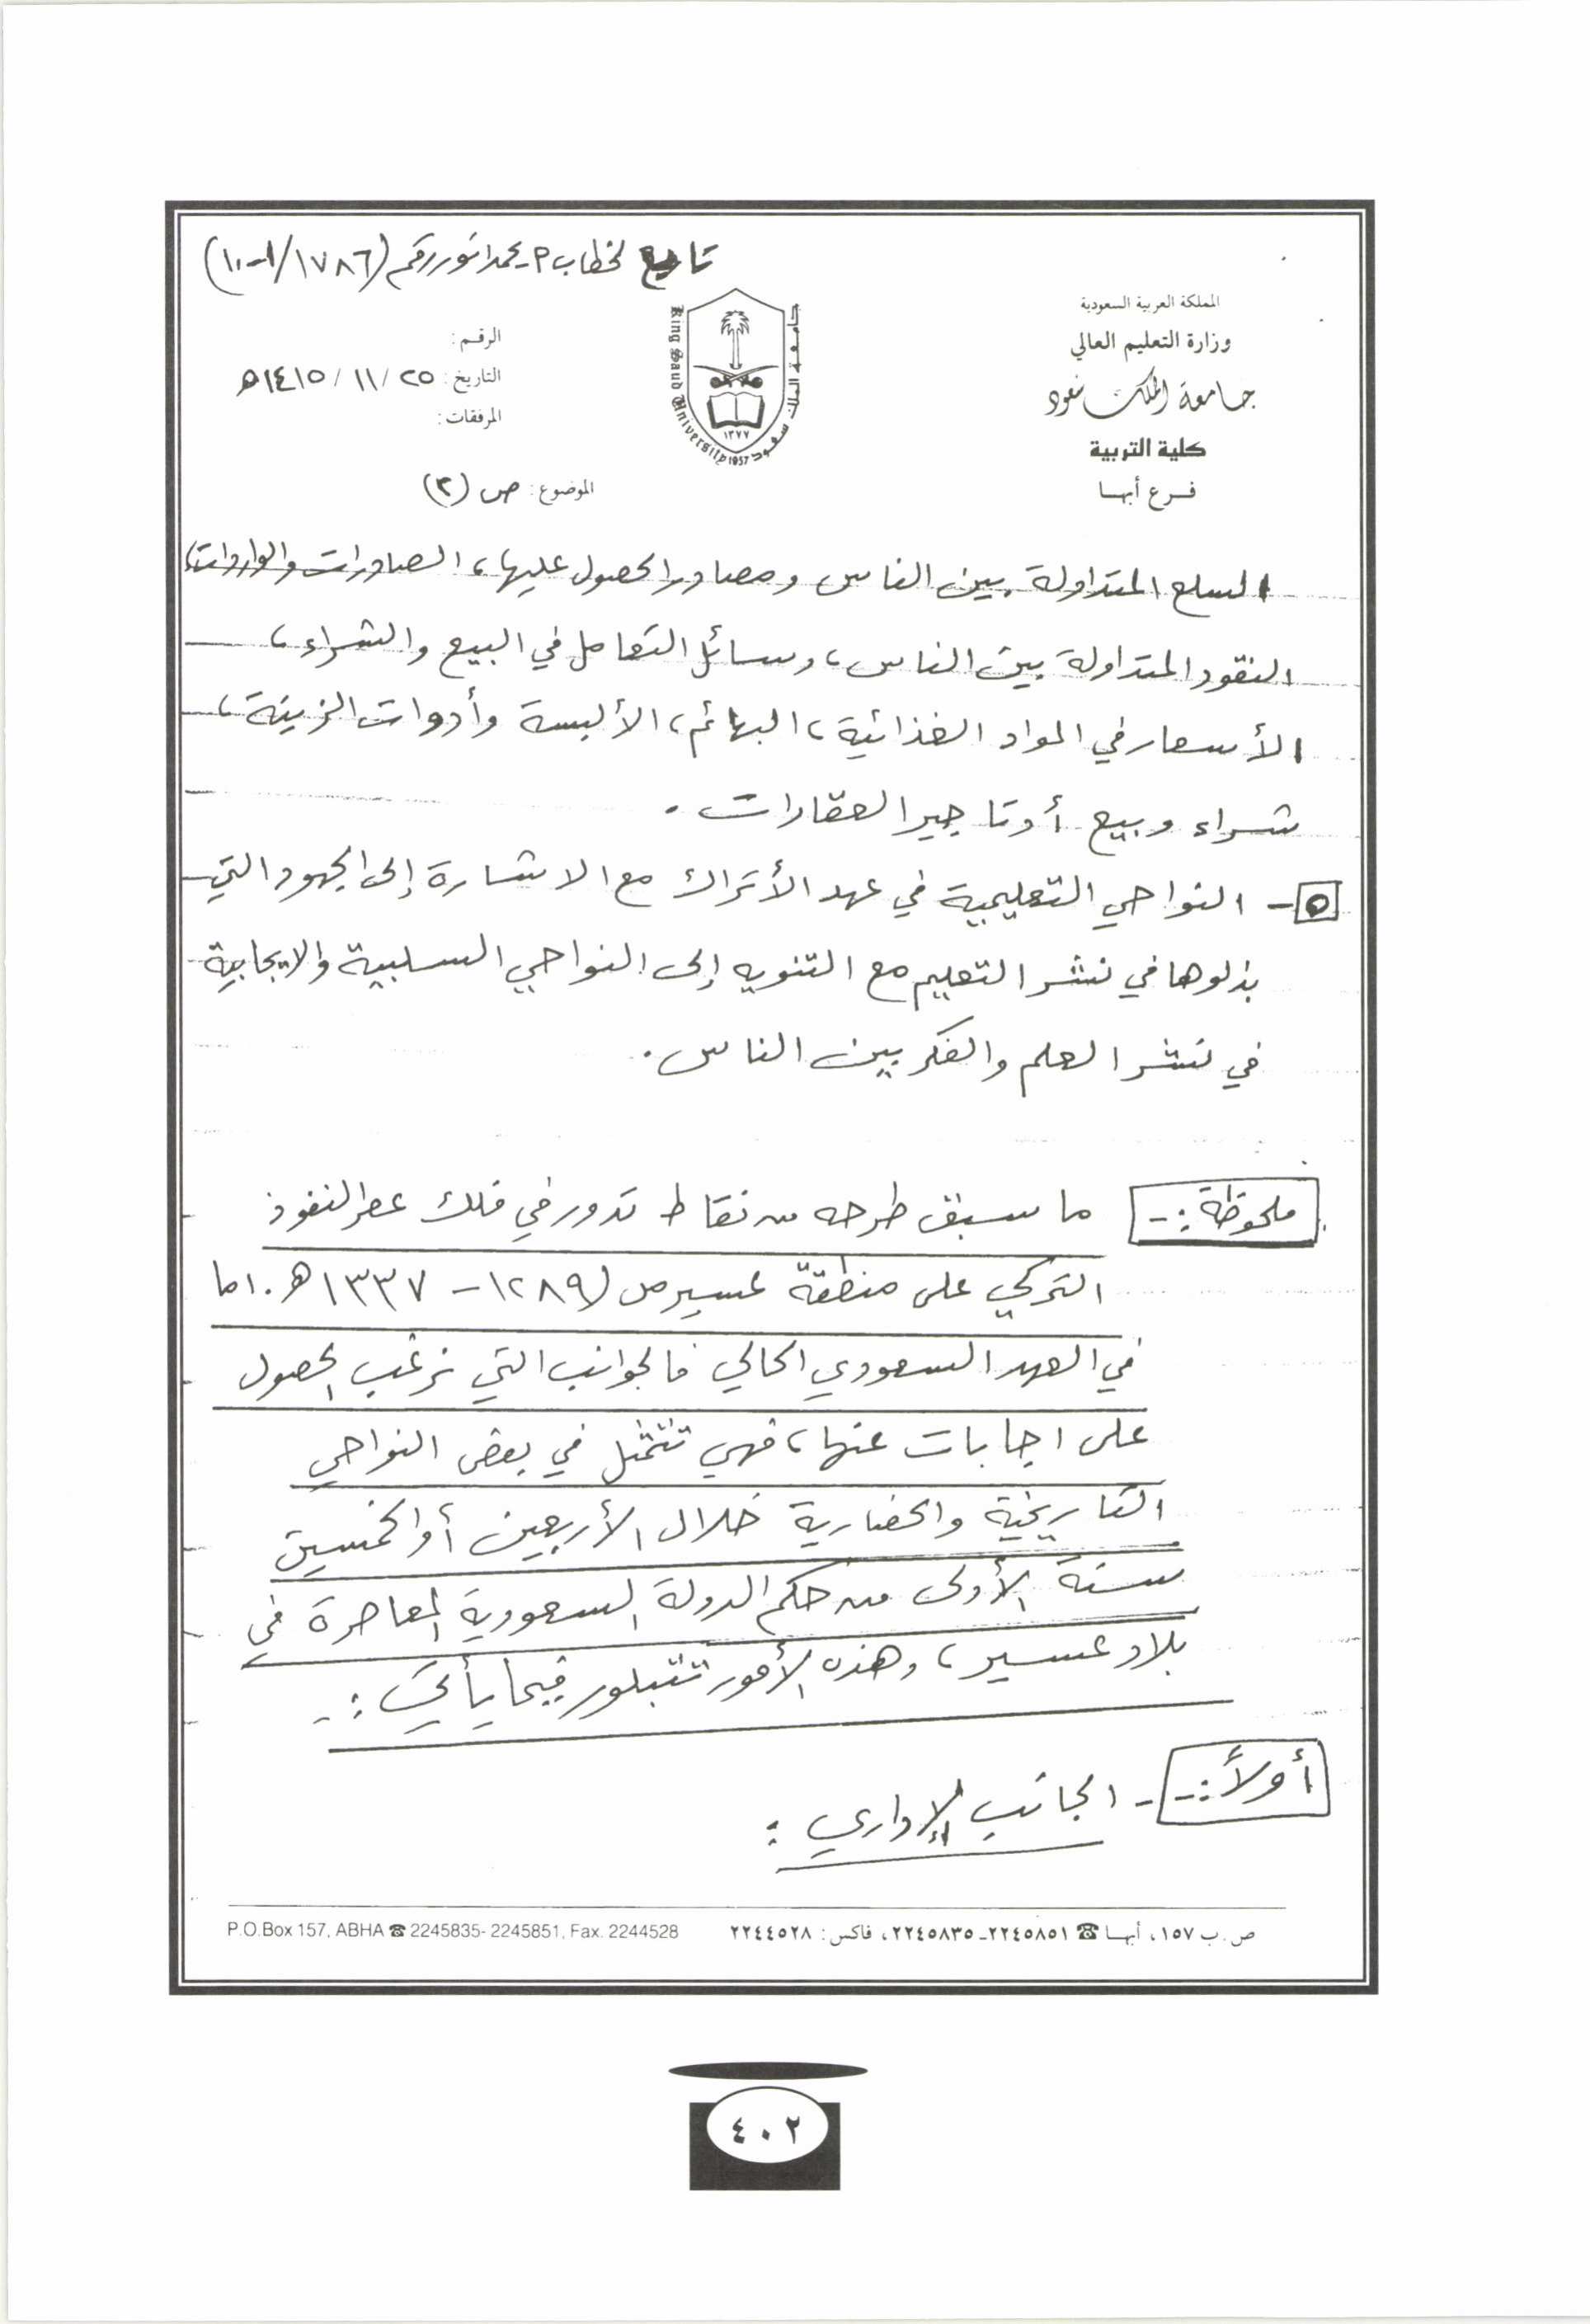 تابع لخطاب م. محمد أنور رقم (١٧٨٦/١-١٠)
المملكة العربية السعودية
وزارة التعليم العالي
جامعة الملك سعود
كلية التربية
فرع أبها
King Saud University 1957
جامعة الملك سعود
١٣٧٧
الرقم:
التاريخ: ٢٥/ ١١/ ١٤١٥هـ
المرفقات:
الموضوع: ص (٣)
السلع المتداولة بين الناس ومصادر الحصول عليها، الصادرات والواردات،
النقود المتداولة بين الناس، وسائل التعامل في البيع والشراء،
الأسعار في المواد الغذائية، البهائم، الألبسة وأدوات الزينة،
شراء وبيع أو تاجير العقارات.
٥- النواحي التعليمية في عهد الأتراك مع الاشارة إلى الجهود التي
بذلوها في نشر التعليم مع التنويه إلى النواحي السلبية والايجابية
في نشر العلم والفكر بين الناس.
ملحوظة:- ما سبق طرحه من نقاط تدور في فلك عصر النفوذ
التركي على منطقة عسير من (١٢٨٩- ١٣٣٧هـ. اما
في العهد السعودي الحالي فالجوانب التي نرغب الحصول
على اجابات عنها، فهي تتمثل في بعض النواحي
التاريخية والحضارية خلال الأربعين أو الخمسين
سنة الأولى من حكم الدولة السعودية المعاصرة في
بلاد عسير، وهذه الأمور تتبلور فيما يأتي:-
أولاً:- الجانب الإداري:
ص.ب ١٥٧، أبها ☎ ٢٢٤٥٨٥١ـ٢٢٤٥٨٣٥، فاكس: ٢٢٤٤٥٢٨
P.O.Box 157, ABHA ☎ 2245835- 2245851, Fax. 2244528
٤٠٢